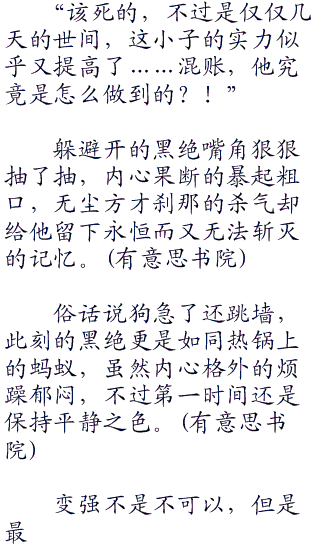 “该死的，不过是仅仅几
天的世间，这小子的实力似
乎又提高了……混账，他究
竟是怎么做到的？！”
躲避开的黑绝嘴角狠狠
抽了抽，内心果断的暴起粗
口，无尘方才刹那的杀气却
给他留下永恒而又无法斩灭
的记忆。(有意思书院)
俗话说狗急了还跳墙，
此刻的黑绝更是如同热锅上
的蚂蚁，虽然内心格外的烦
躁郁闷，不过第一时间还是
保持平静之色。(有意思书
院)
变强不是不可以，但是
最